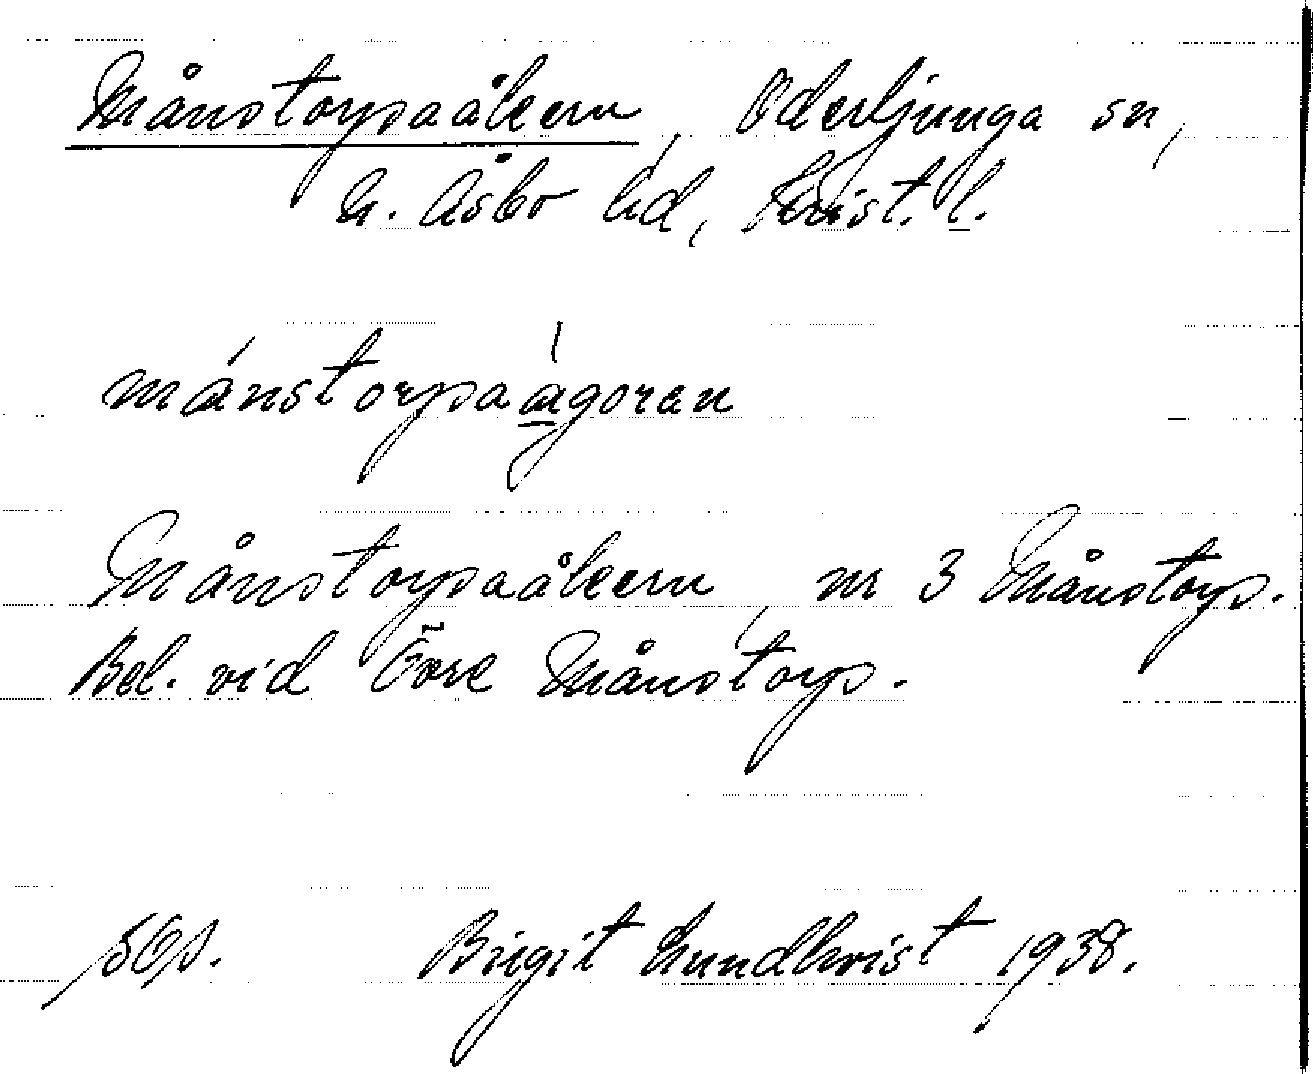 Månstorpsaåkern, Oderljunga sn,
N. Åsbo hd, Krist. l.
månstorpsaágoran
Månstorpsaåkern, nr 3 Månstorp.
Bel. vid Övre Månstorp.
Birgit Lundkvist 1938.